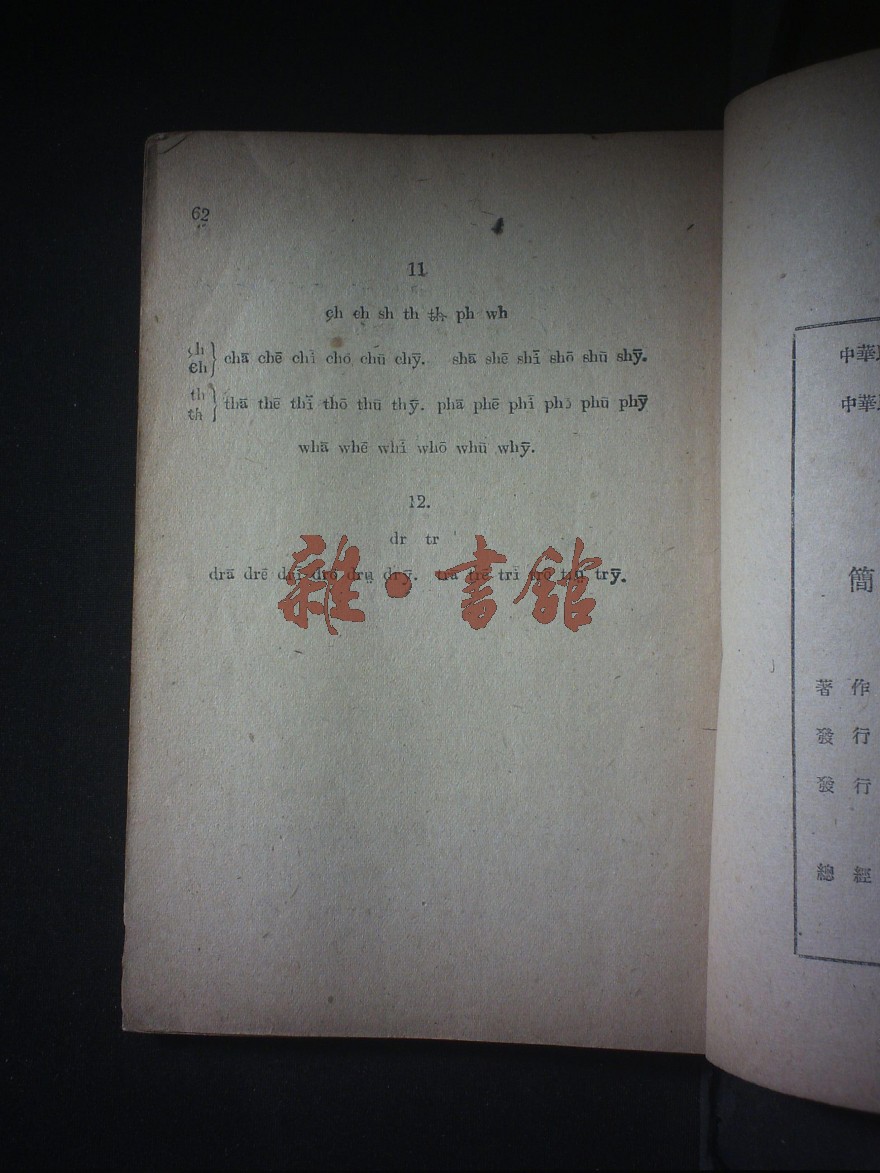 62
11
çh ch sh th th ph wh
çh
ch
chā chē chī chō chū chȳ. shā shē shī shō shū shȳ.
th
th
thā thē thī thō thū thȳ. phā phē phī phō phū phȳ
whā whē whī whō whū whȳ.
12.
dr tr
drā drē drī drō drū drȳ. trā trē trī trō trū trȳ.
雜·書館
中華
中華
簡
著作
發行
發行
總經